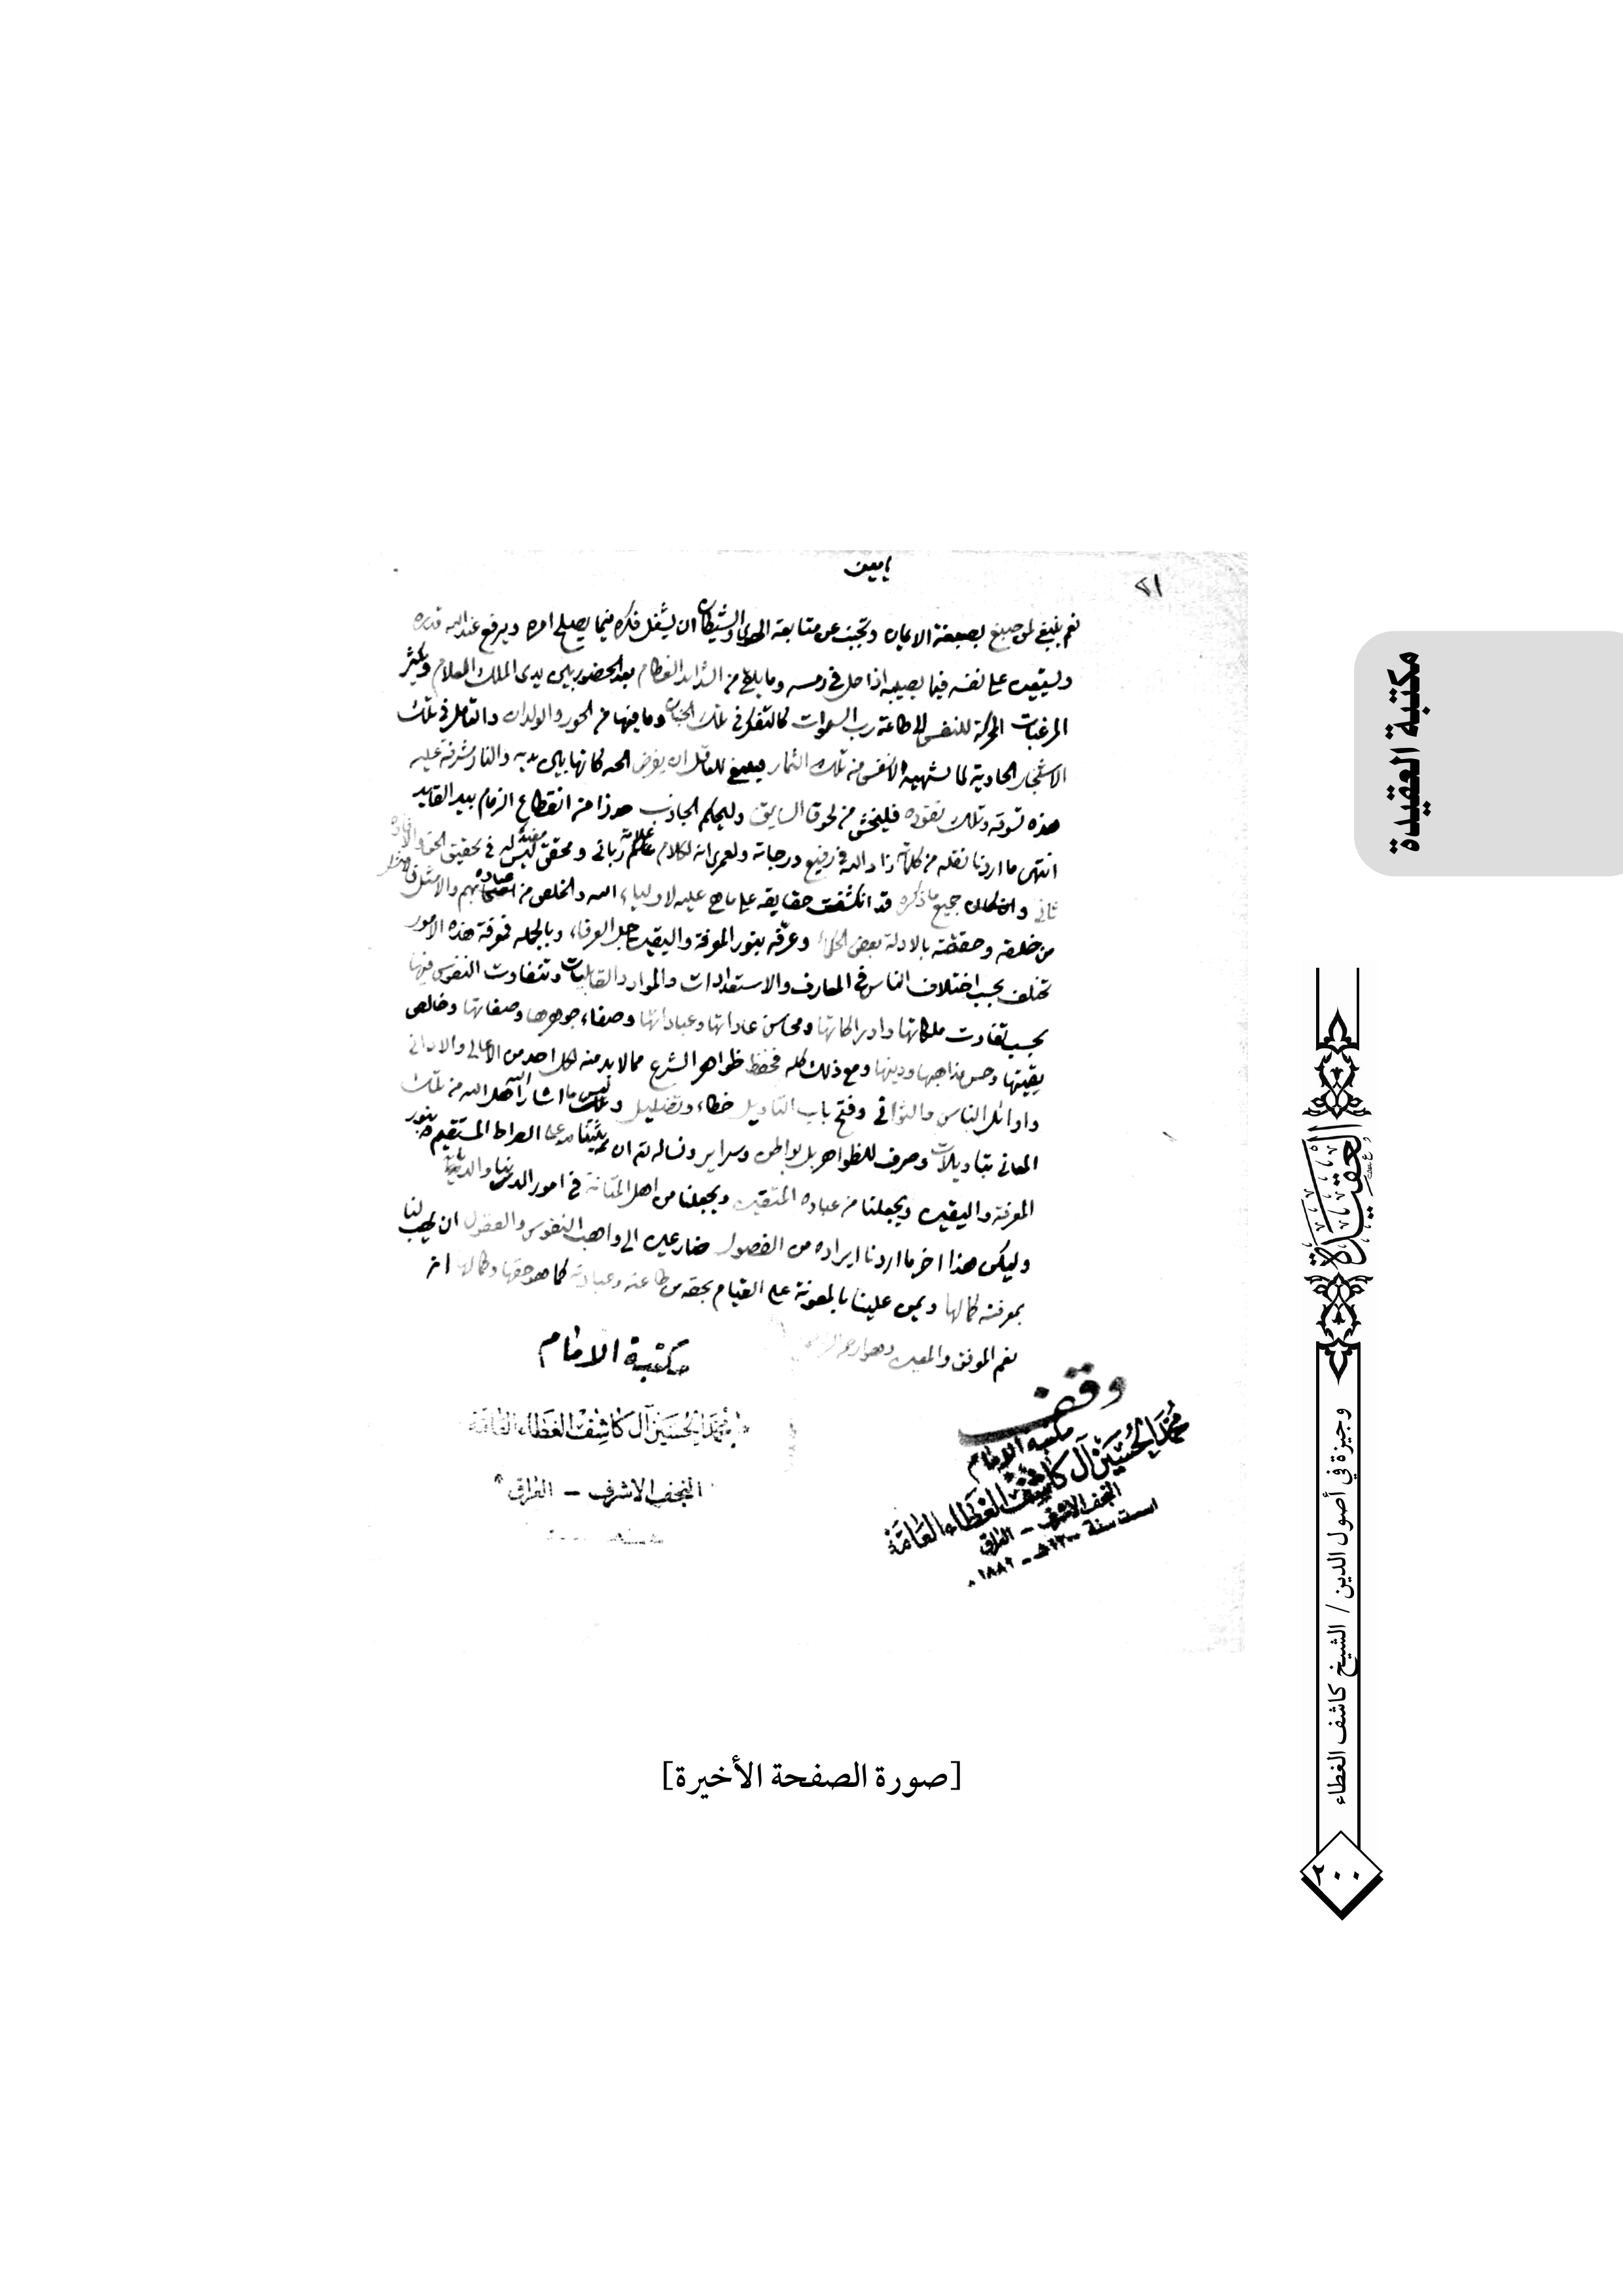 مكتبة العقيدة
العقيدة
وجيزة في أصول الدين / الشيخ كاشف الغطاء
٢٠٠
٢١
نعم ينبغي لمن صبغ بصبغة الايمان وتجنب عن متابعة الهوى والشيطان ان يشغل فكره فيما يصلح امره ويرفع عند الله قدره
ويستعين على نفسه فيما يصيبه اذا حل في رمسه وما يلاقي من الشدائد العظام بعد الحضور بين يدي الملك العلام ويكثر
المرغبات المحركة للنفس الى طاعة رب السموات كالتفكر في تلك الجنان وما فيها من الحور والولدان والتامل في تلك
الاشجار الحاوية لما تشتهيه الانفس من تلك الثمار فينبغي للعاقل ان يفرض الجنه كانها بين يديه والنار مشرفة عليه
هذه تسوقه وتلك تقوده فليخش من لحوق السايق وليحكم الجاذب حذرا من انقطاع الزمام بيد القايد
انتهى ما اردنا نقله من كلامه زاد الله في رفيع درجاته ولعمري انه لكلام عالم رباني ومحقق ليس له في تحقيق الحق
ثاني وان كان جميع ما ذكره قد انكشفت حقايقه على ما هي عليه لاولياء الله والخلص من عباده
من خلقه وحققته بالادلة بعض الحكماء وعرفه بنور المعرفة واليقين جل العرفاء وبالجمله فمعرفة هذه الامور
تختلف بحسب اختلاف الناس في المعارف والاستعدادات والمواد والقابليات وتتفاوت النفوس فيها
بحسب تفاوت ملكاتها وادراكاتها ومحاسن عاداتها وعباداتها وصفاء جوهرها وصفاتها وخالص
يقينها وحسن مذاهبها ودينها ومع ذلك كله فحفظ ظواهر الشرع مما لابد منه لكل احد من الاعالي والاداني
واوائل الناس والثواني وفتح باب التاويل خطاء وتضليل وليس ما اشار اليه اهل الله من تلك
المعاني بتاويلات وصرف للظواهر بل بواطن وسراير ونساله ان يثبتنا على الصراط المستقيم بنور
المعرفة واليقين ويجعلنا من عباده المتقين ويجعلنا من اهل المتانة في امور الدنيا والدين
وليكن هذا اخر ما اردنا ايراده من الفصول ضارعين الى واهب النفوس والعقول ان يهب لنا
بمعرفته كمالها ويمن علينا بالمعونة على القيام بحقه من طاعته وعبادته كما هو حقها وكمالها انه
نعم الموفق والمعين وهو ارحم
مكتبة الامام
محمد الحسين آل كاشف الغطاء العامة
النجف الاشرف – العراق
وقف
مكتبة الامام
محمد الحسين آل كاشف الغطاء العامة
النجف الاشرف – العراق
اسست سنة
[صورة الصفحة الأخيرة]